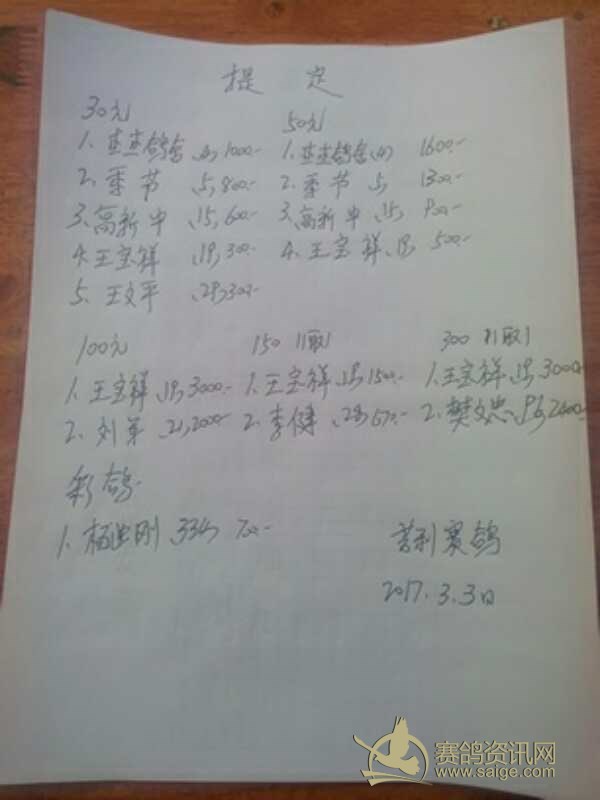 提 定
30元 50元
1、燕燕鸽舍 (4) 1000.- 1、燕燕鸽舍 (4) 1600.-
2、季节 、5, 800.- 2、季节 5, 1300.-
3、高新中 、15, 600.- 3、高新中 、15,
4、王宝祥 、19, 300.- 4、王宝祥 、19, 500.-
5、王文平 300.-
100元 150 11取1 300 11取1
1、王宝祥、19, 3000.- 1、王宝祥、19, 1500.- 1、王宝祥、19, 3000.-
2、刘军 21, 2000.- 2、李健 2、樊文忠、 2400.-
彩鸽.
1、杨进刚 、334, 700.-
赛鸽
2017.3.3日
赛鸽资讯网
www.saige.com